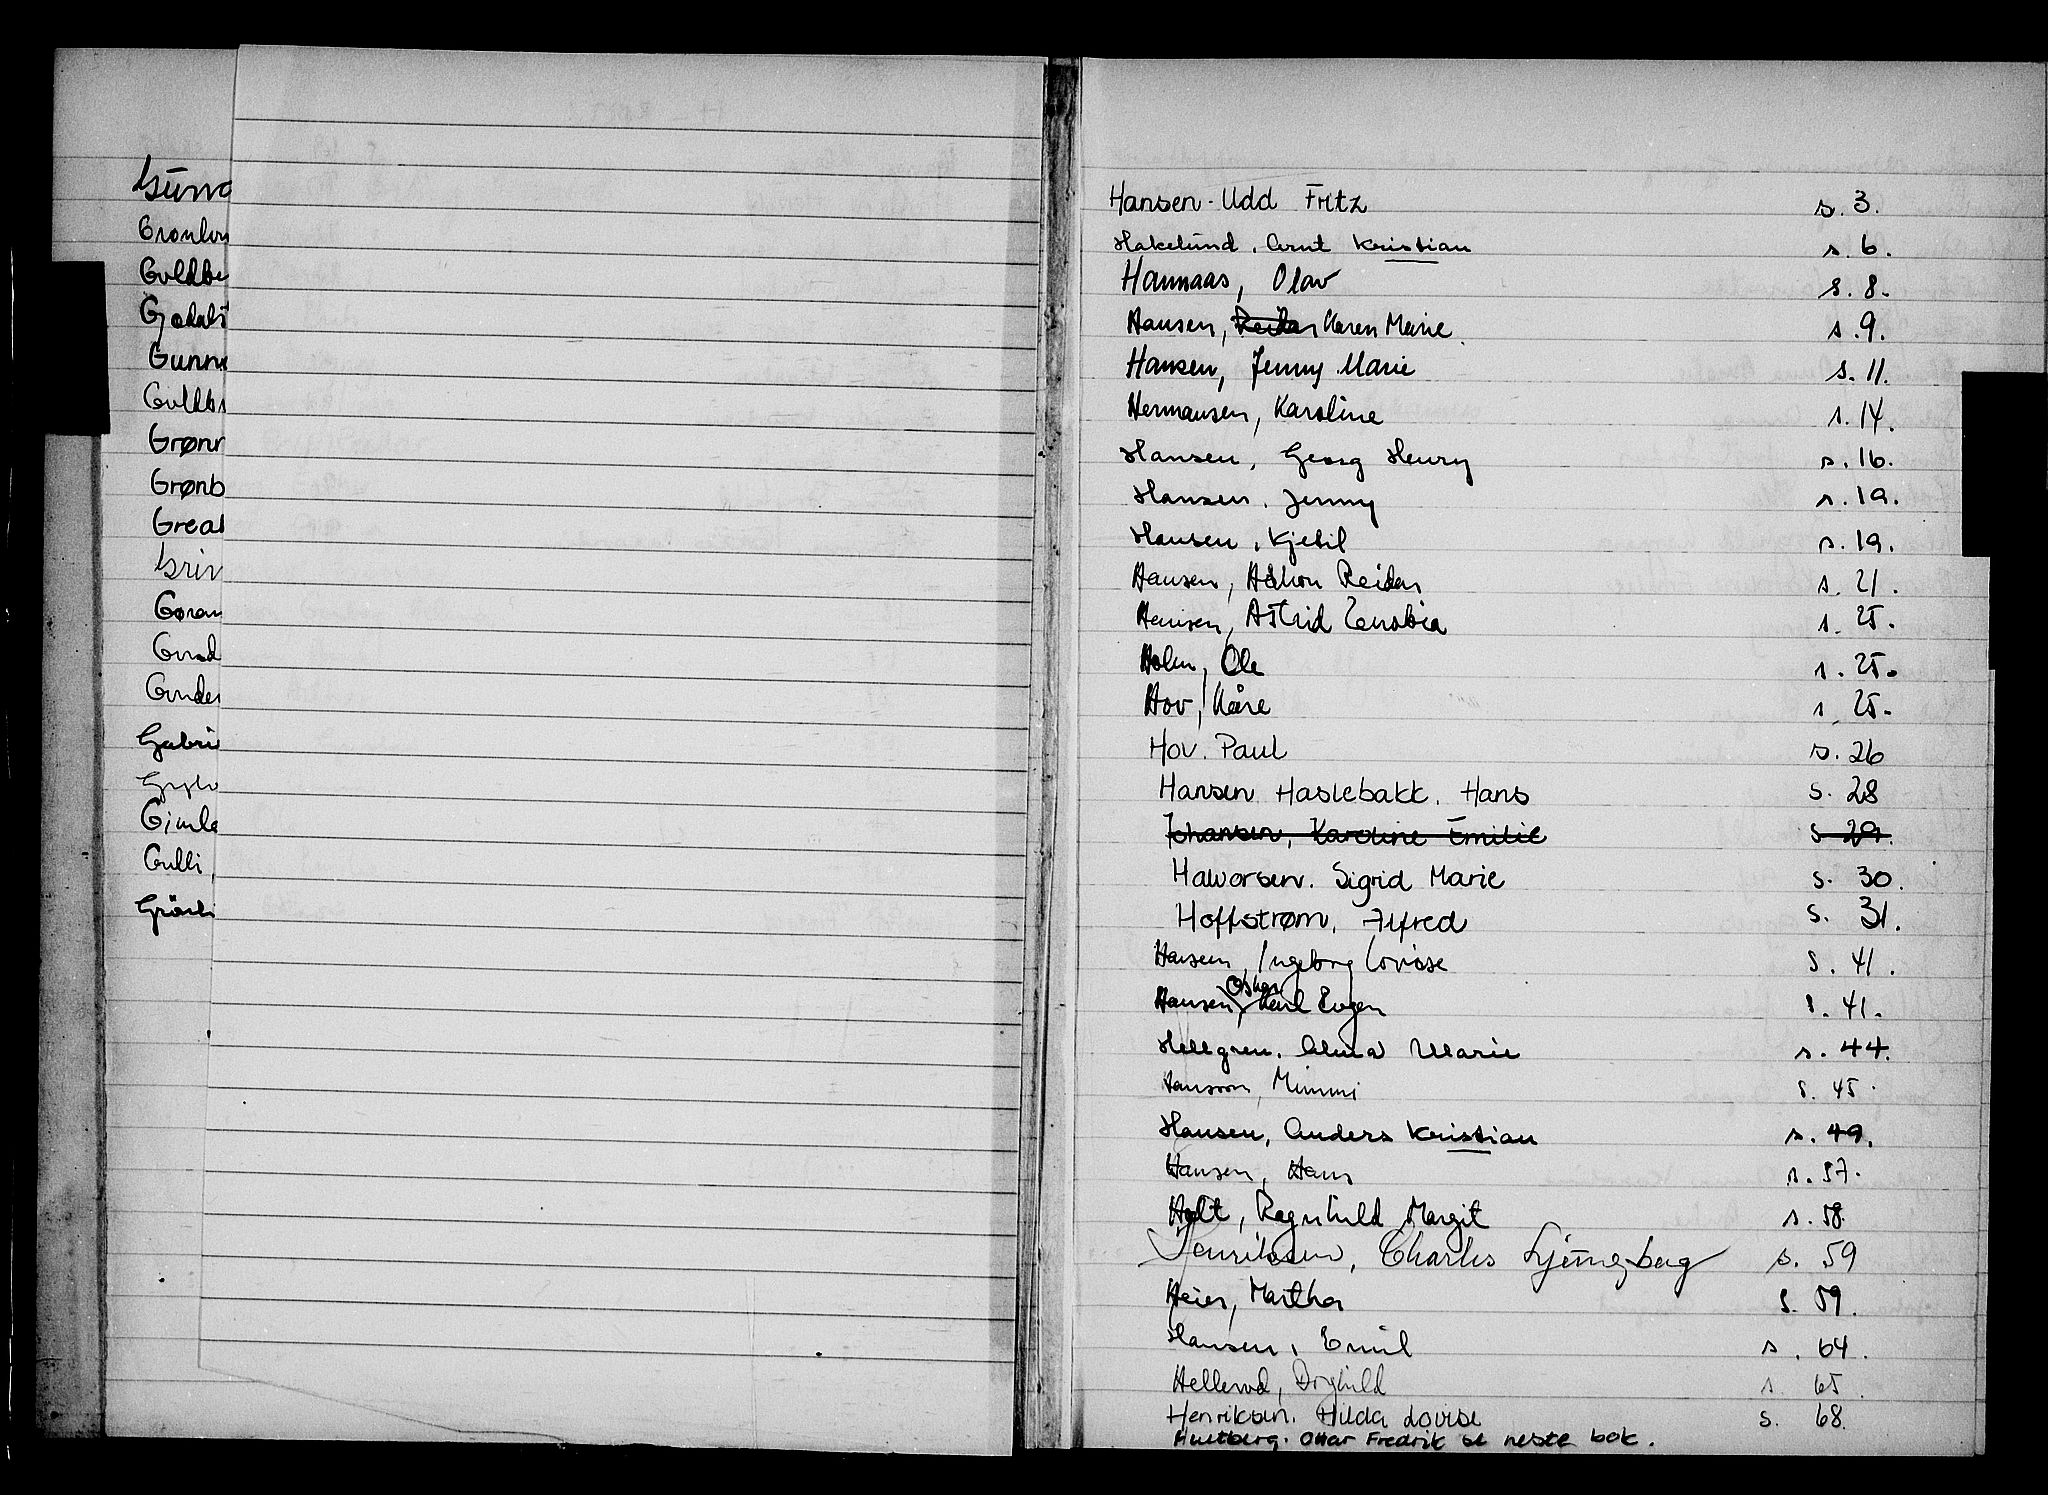 Gunn
Gronlun
Guldbe
Gjodals
Gunn
Guldb
Grønn
Grønb
Grea
Grin
Goran
Gud
Gunder
Gabri
Gimle
Gulli,
Hansen-Udd Fritz s. 3.
Hakelund. Arnt Kristian s. 6.
Hannaas, Olav s. 8.
Hansen, Reidar Karen Marie s. 9.
Hansen, Jenny Marie s. 11.
Hermansen, Karoline s. 14.
Hansen, Georg Henry s. 16.
Hansen. Jenny s. 19.
Hansen, Kjetil s. 19.
Hansen, Håkon Reidar s. 21.
Hansen, Astrid Zenobia s. 25.
Holm, Ole s. 25.
Hov, Kåre s. 25.
Hov. Paul s. 26
Hansen Haslebakk. Hans s. 28
Johansen, Karoline Emilie s 29.
Halvorsen. Sigrid Marie s. 30.
Hoffstrøm, Alfred s. 31.
Hansen, Ingeborg Lovise s. 41.
Oskar
Hansen, Karl Eugen s. 41.
Hellgren. Alma Marie s. 44.
Hansson, Mimmi s. 45.
Hansen, Anders Kristian s. 49.
Hansen, Hans s. 57.
Holt, Ragnhild Margit s. 58.
Henriksen, Charles Ljungberg s. 59
Heier, Martha s. 59.
Hansen, Emil s. 64.
Hellerud, Borghild s. 65.
Henriksen. Hilda Lovise s. 68.
Hultberg. Ottar Fredrik se neste bok.